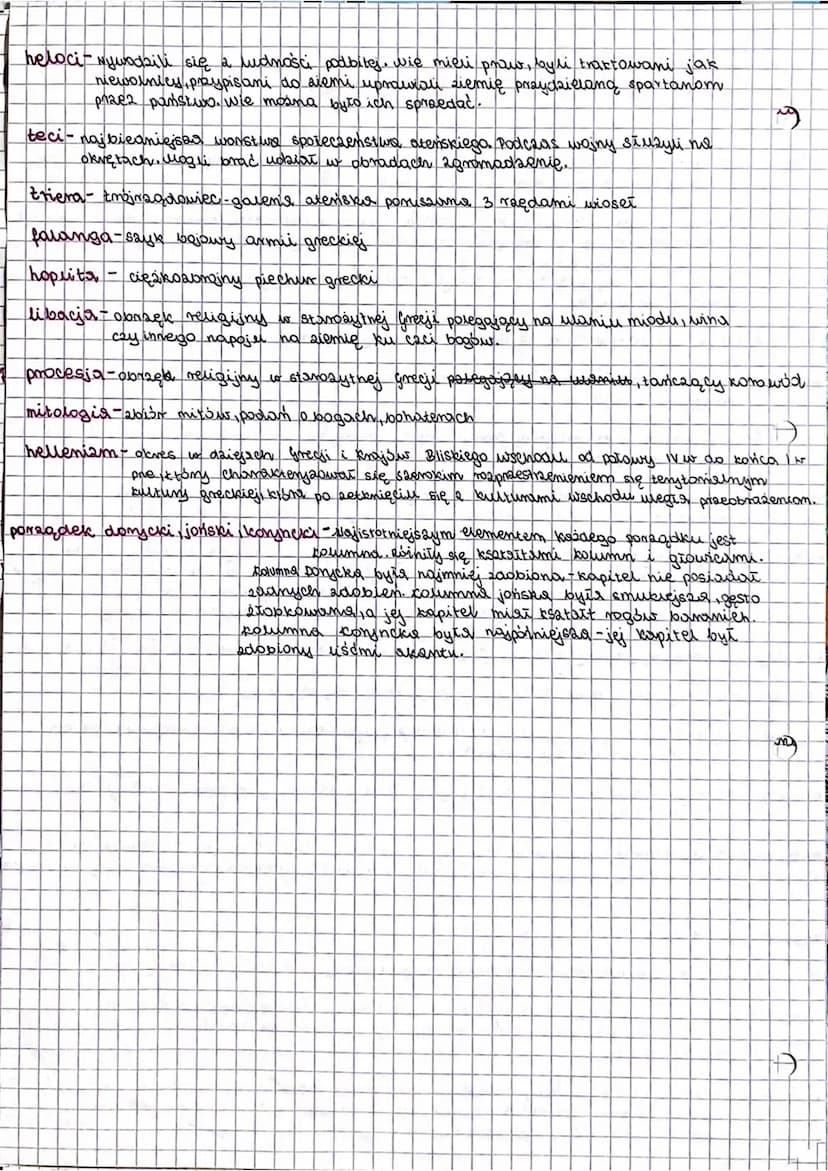 heloci - wywodzili się z ludności podbitej. Nie mieli praw, byli traktowani jak
niewolnicy, przypisani do ziemi uprawiali ziemię przydzieloną spartanom
przez państwo. Nie można było ich sprzedać.
teci - najbiedniejsza warstwa społeczeństwa ateńskiego. Podczas wojny służyli na
okrętach. Mogli brać udział w obradach zgromadzenie.
triera - trójrzędowiec - galera ateńska poruszana 3 rzędami wioseł
falanga - szyk bojowy armii greckiej
hoplita - ciężkozbrojny piechur grecki
libacja - obrzęk religijny w starożytnej Grecji polegający na ulaniu miodu, wina
czy innego napoju na ziemię ku czci bogów.
procesja - obrzęk religijny w starożytnej Grecji polegający na ulaniu, tańczący korowód
mitologia - zbiór mitów, podań o bogach, bohaterach
hellenizm - okres w dziejach Grecji i krajów Bliskiego Wschodu od połowy IV w do końca I w
pne, który charakteryzował się szerokim rozprzestrzenieniem się terytorialnym
kultury greckiej, która po zetknięciu się z kulturami wschodu uległa przeobrażeniom.
porządek dorycki, joński, koryncki - Najistotniejszym elementem każdego porządku jest
kolumna. Różniły się kształtami kolumn i głowicami.
Kolumna Dorycka była najmniej zdobiona - kapitel nie posiadał
żadnych zdobień. Kolumna jońska była smuklejsza, gęsto
żłobkowana, a jej kapitel miał kształt rogów baranich.
Kolumna Koryncka była najpóźniejsza - jej kapitel był
zdobiony liśćmi akantu.